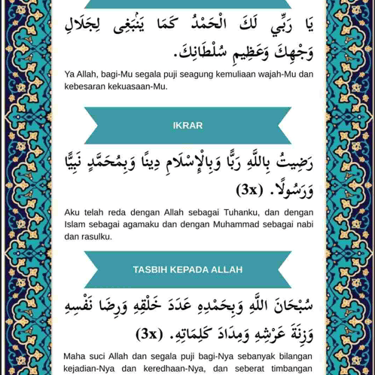 يَا رَبِّي لَكَ الْحَمْدُ كَمَا يَنْبَغِى لِجَلَالِ
وَجْهِكَ وَعَظِيمِ سُلْطَانِكَ.
Ya Allah, bagi-Mu segala puji seagung kemuliaan wajah-Mu dan
kebesaran kekuasaan-Mu.
IKRAR
رَضِيتُ بِاللَّهِ رَبًّا وَبِالْإِسْلَامِ دِينًا وَبِمُحَمَّدٍ نَبِيًّا
وَرَسُولًا. (3x)
Aku telah reda dengan Allah sebagai Tuhanku, dan dengan
Islam sebagai agamaku dan dengan Muhammad sebagai nabi
dan rasulku.
TASBIH KEPADA ALLAH
سُبْحَانَ اللَّهِ وَبِحَمْدِهِ عَدَدَ خَلْقِهِ وَرِضَا نَفْسِهِ
وَزِنَةَ عَرْشِهِ وَمِدَادَ كَلِمَاتِهِ. (3x)
Maha suci Allah dan segala puji bagi-Nya sebanyak bilangan
kejadian-Nya dan keredhaan-Nya, dan seberat timbangan